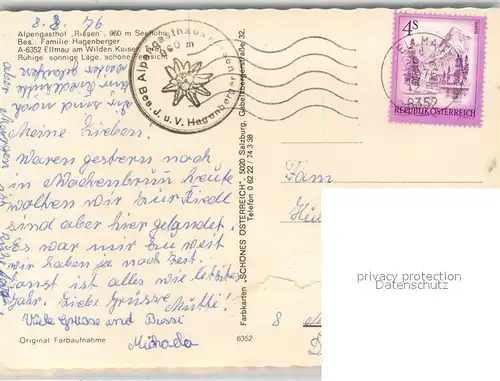 8. 8. 76
Alpengasthof „Riesen", 960 m Seehöhe
Bes.: Familie Hagenberger
A-6352 Ellmau am Wilden Kaiser
Ruhige sonnige Lage, schöne
Alpengasthaus Riesen
960 m
Bes. J. u. V. Hagenberger
4 S
REPUBLIK ÖSTERREICH
6352
Meine Lieben.
Waren gestern noch
in Wochenbrunn heute
wollten wir zur
sind aber hier gelandet.
Es war mir zu weit
wir haben ja noch Zeit.
Sonst ist alles wie letztes
Jahr. Liebe Grüsse
Mutti!
Viele Grüsse und Bussi
Michaela
Original Farbaufnahme
6352
Farbkarten „SCHÖNES ÖSTERREICH", 5020 Salzburg, Gabelsbergerstraße 32,
Telefon 0 62 22 / 74 3 38
Fam
8
privacy protection
Datenschutz